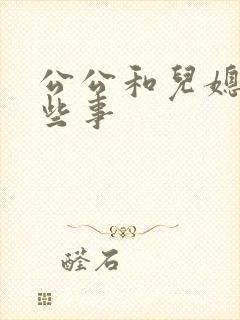 公公和兒媳
些事
醛石